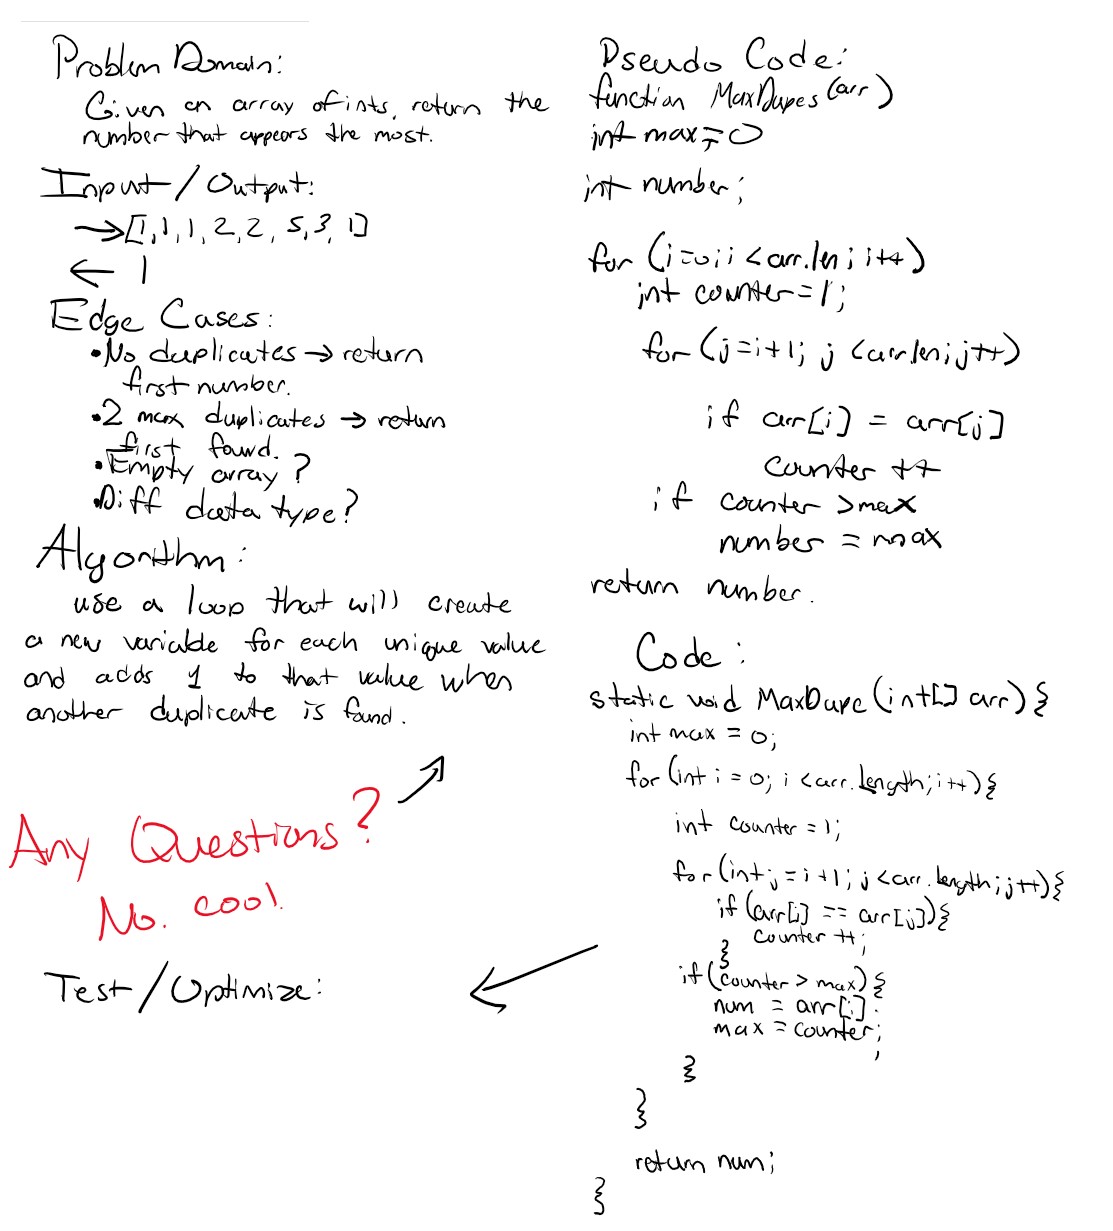 Problem Domain:
Given an array of ints, return the
number that appears the most.
Input/Output:
→[1,1,1,2,2,5,3,1]
← 1
Edge Cases:
•No duplicates → return
first number.
•2 max duplicates → return
first found.
•Empty array?
•Diff data type?
Algorithm:
use a loop that will create
a new variable for each unique value
and adds 1 to that value when
another duplicate is found.
Any Questions?
No. cool.
Test/Optimize:
Pseudo Code:
function MaxDupes(arr)
int max = 0
int number;
for (i=0; i < arr.len; i++)
int counter = 1;
for (j=i+1; j < arr.len; j++)
if arr[i] = arr[j]
counter ++
if counter > max
number = max
return number.
Code:
static void MaxDupe(int[] arr){
int max = 0;
for (int i = 0; i < arr.length; i++){
int counter = 1;
for (int j = i+1; j < arr.length; j++){
if (arr[i] == arr[j]){
counter ++;
}
if (counter > max){
num = arr[i];
max = counter;
}
}
return num;
}